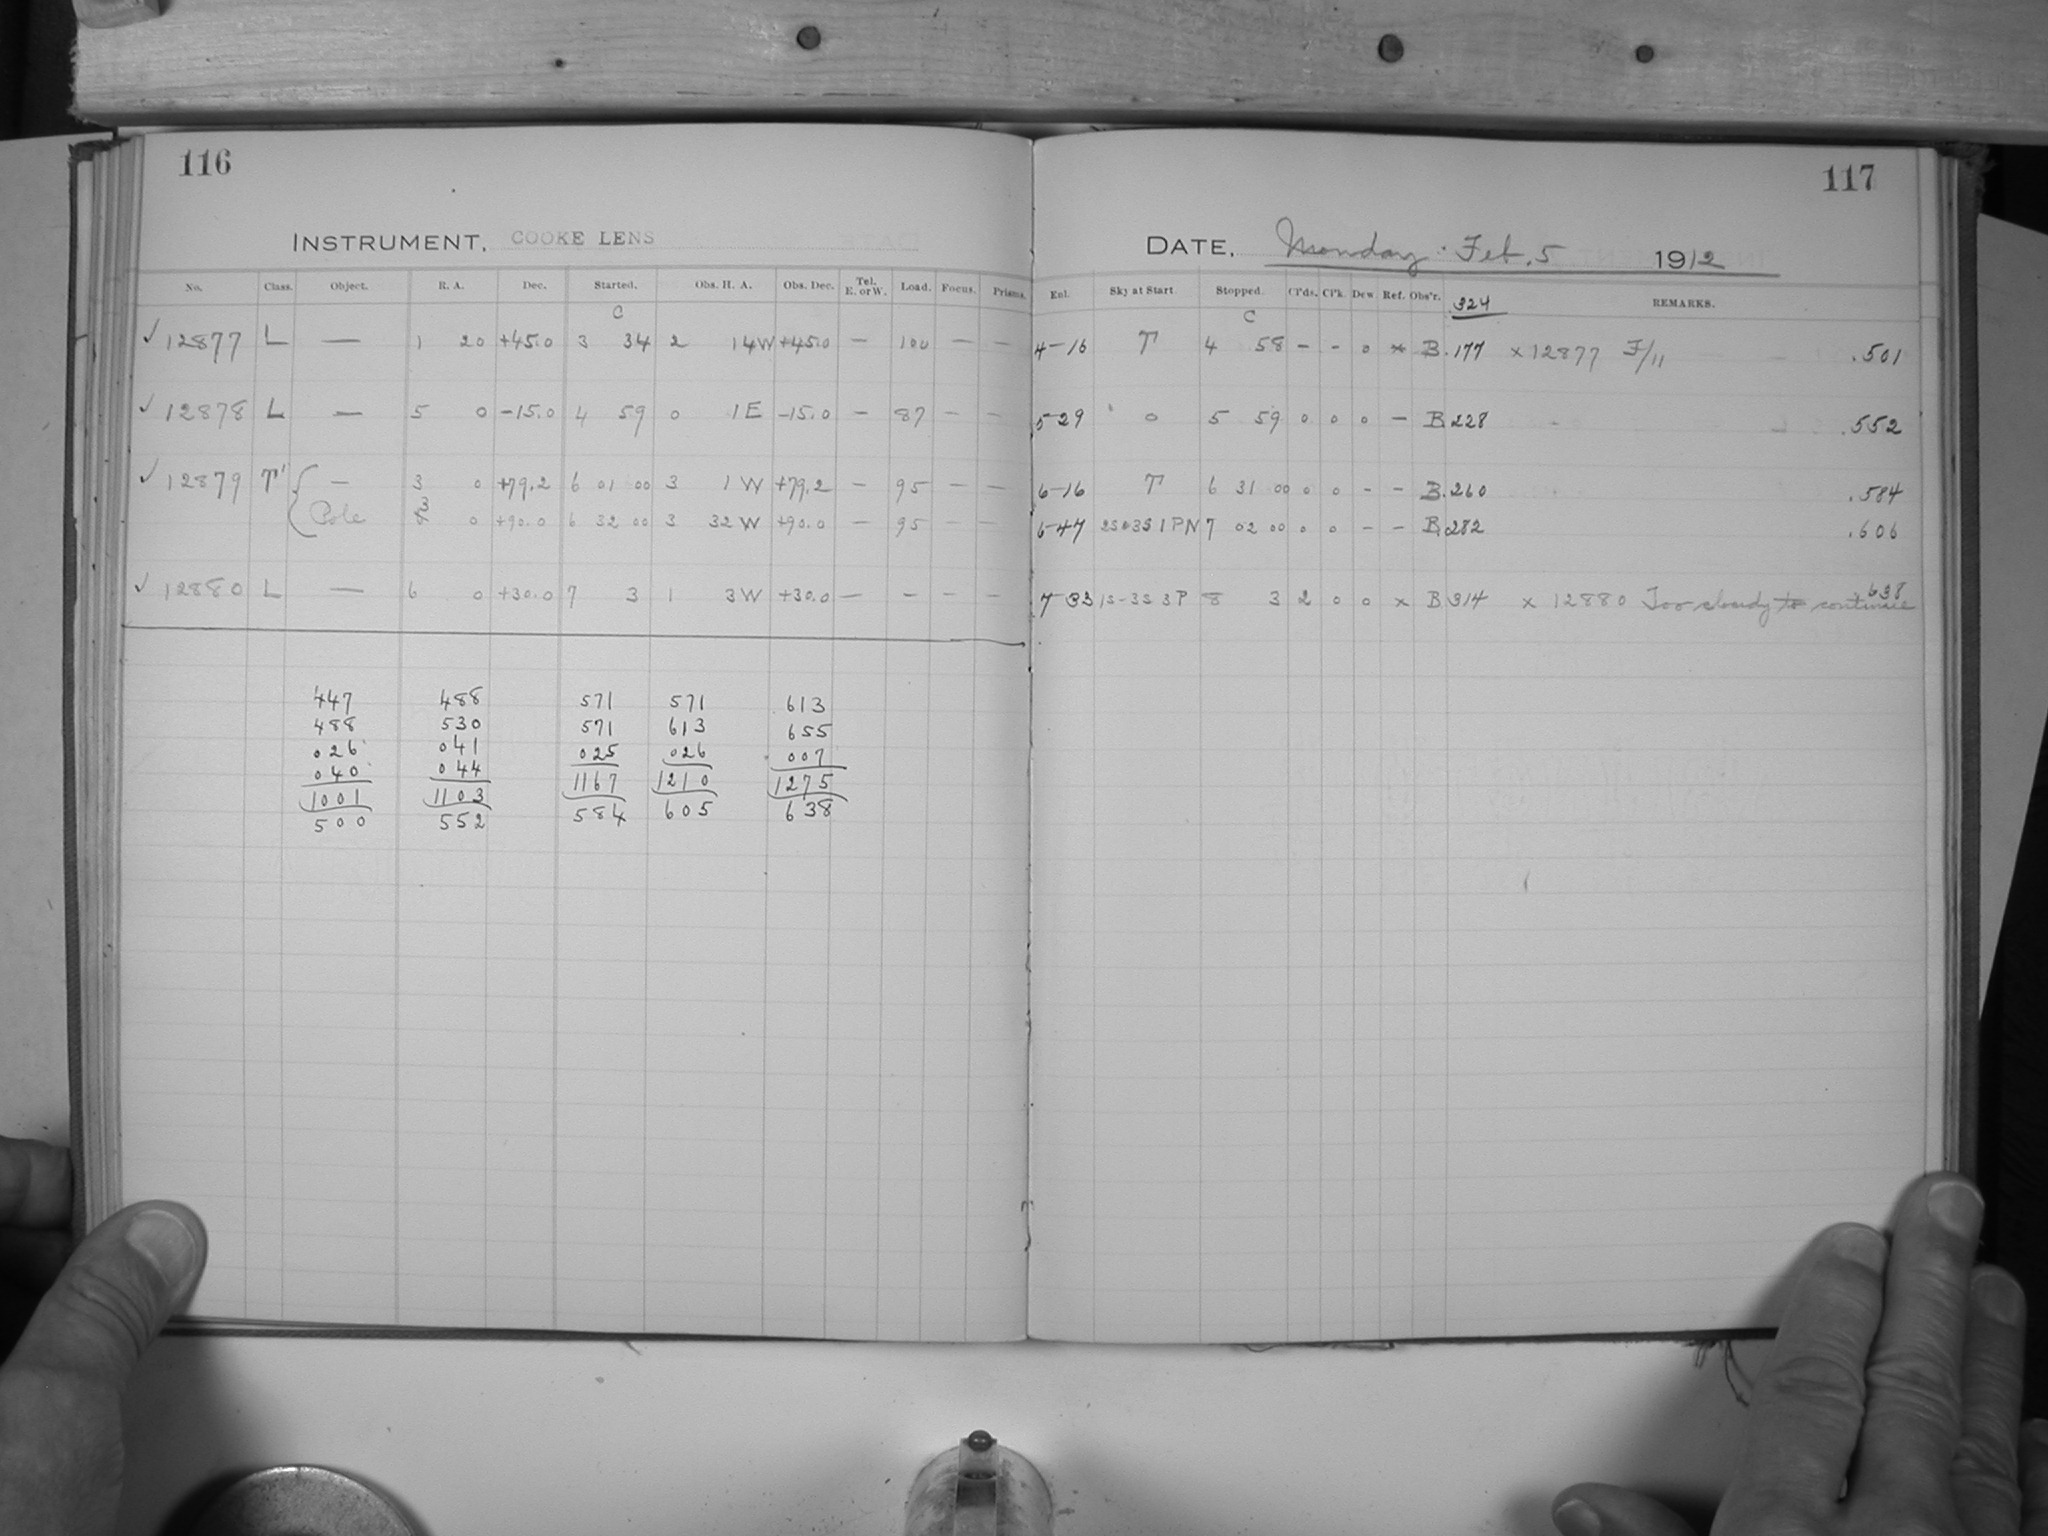 116
INSTRUMENT, COOKE LENS
No. Class. Object. R. A. Dec. Started. Obs. H. A. Obs. Dec. Tel. E. or W. Load. Focus. Prisms.
C
✓ 12877 L — 1 20 +45.0 3 34 2 14W +45.0 — 100 — —
✓ 12878 L — 5 0 -15.0 4 59 0 1E -15.0 — 87 — —
✓ 12879 T' — 3 0 +79.2 6 01 00 3 1W +79.2 — 95 — —
3
Pole 0 +90.0 6 32 00 3 32W +90.0 — 95 — —
✓ 12880 L — 6 0 +30.0 7 3 1 3W +30.0 — — — —
447 488 571 571 613
488 530 571 613 655
026 041 025 026 007
040 044 1167 1210 1275
1001 1103 584 605 638
500 552
117
DATE, Monday. Feb. 5 1912
Enl. Sky at Start. Stopped. Cl'ds. Cl'k. Dew. Ref. Obs'r. .324 REMARKS.
C
4-16 T 4 58 - - 0 x B .177 x 12877 F/11 .501
5-29 0 5 59 0 0 0 - B .228 .552
6-16 T 6 31 00 0 0 - - B .260 .584
6-47 2S03S1PN 7 02 00 0 0 - - B .282 .606
7-33 1S-3S3P 8 3 2 0 0 x B .314 x 12880 Too cloudy to continue .638